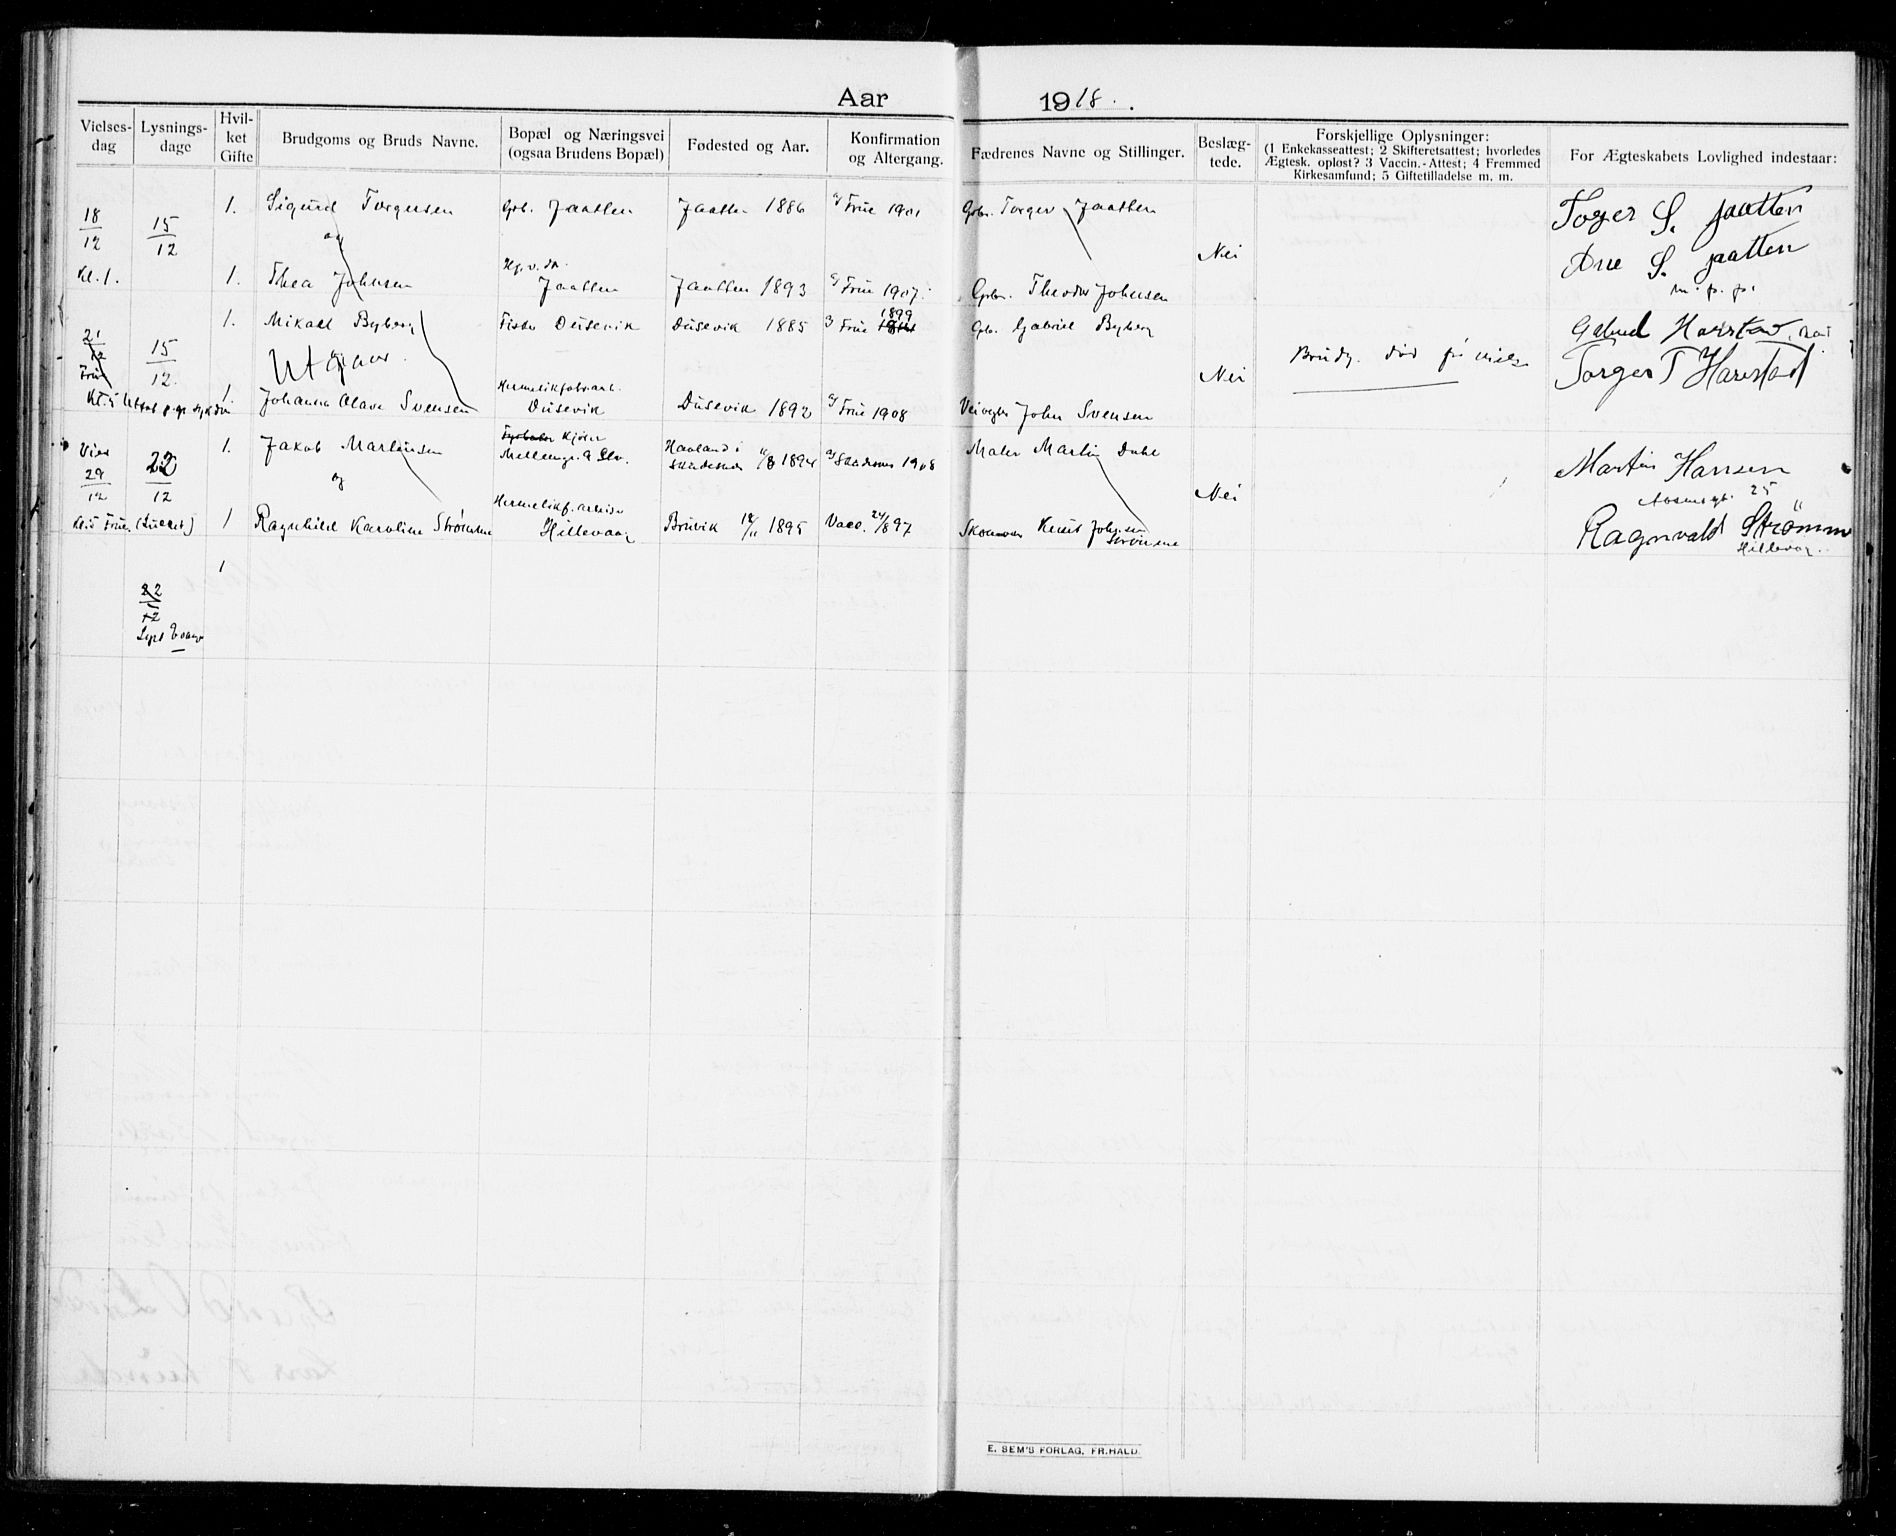 Aar 1918.
Vielses-dag
Lysnings-dage
Hvil-ket Gifte
Brudgoms og Bruds Navne.
Bopæl og Næringsvei (ogsaa Brudens Bopæl)
Fødested og Aar.
Konfirmation og Altergang.
Fædrenes Navne og Stillinger.
Beslæg-tede.
Forskjellige Oplysninger:
(1 Enkekasseattest; 2 Skifteretsattest; hvorledes
Ægtesk. opløst? 3 Vaccin.-Attest; 4 Fremmed
Kirkesamfund; 5 Giftetilladelse m. m.
For Ægteskabets Lovlighed indestaar:
18/12 15/12 1. Sigurd Torgersen Grb. Jaatten Jaatten 1886 Frue 1901 Grbr. Torger Jaatten Toger S. Jaatten
og Nei Ane S. Jaatten
m. p. p.
Kl. 1. 1. Thea Johnsen Jaatten Jaatten 1893 Frue 1907. Grbr. Theodor Johnsen
21/12 15/12. 1. Mikael Byberg Fisker Dusevik Dusevik 1885 3 Frue 1899 Grb. Gabriel Byberg Gabriel Harestad
Frue Utgaar. Nei Brudg. død Torger T Harestad
1. Johanna Olave Svensen Hermetikfabrarb. Dusevik Dusevik 1892 Frue 1908 John Svensen
Viet 29/12 22/12 1. Jakob Martinsen Kjører Møllergt. 9 Haaland i Skudesnes 1894 Skudesnes 1908 Maler Martin Dahl Martin Hansen
og Nei 25
Kl. 5 Frue. 1 Ragnhild Karoline Strømme Hermetikf. arbeider Hillevaag Bruvik 1895 Vacc. 24/8 97 Knut Johnsen Strømme Ragnvald Strømme
Hillevag.
1
22/12
E. SEM'S FORLAG, FR.HALD.